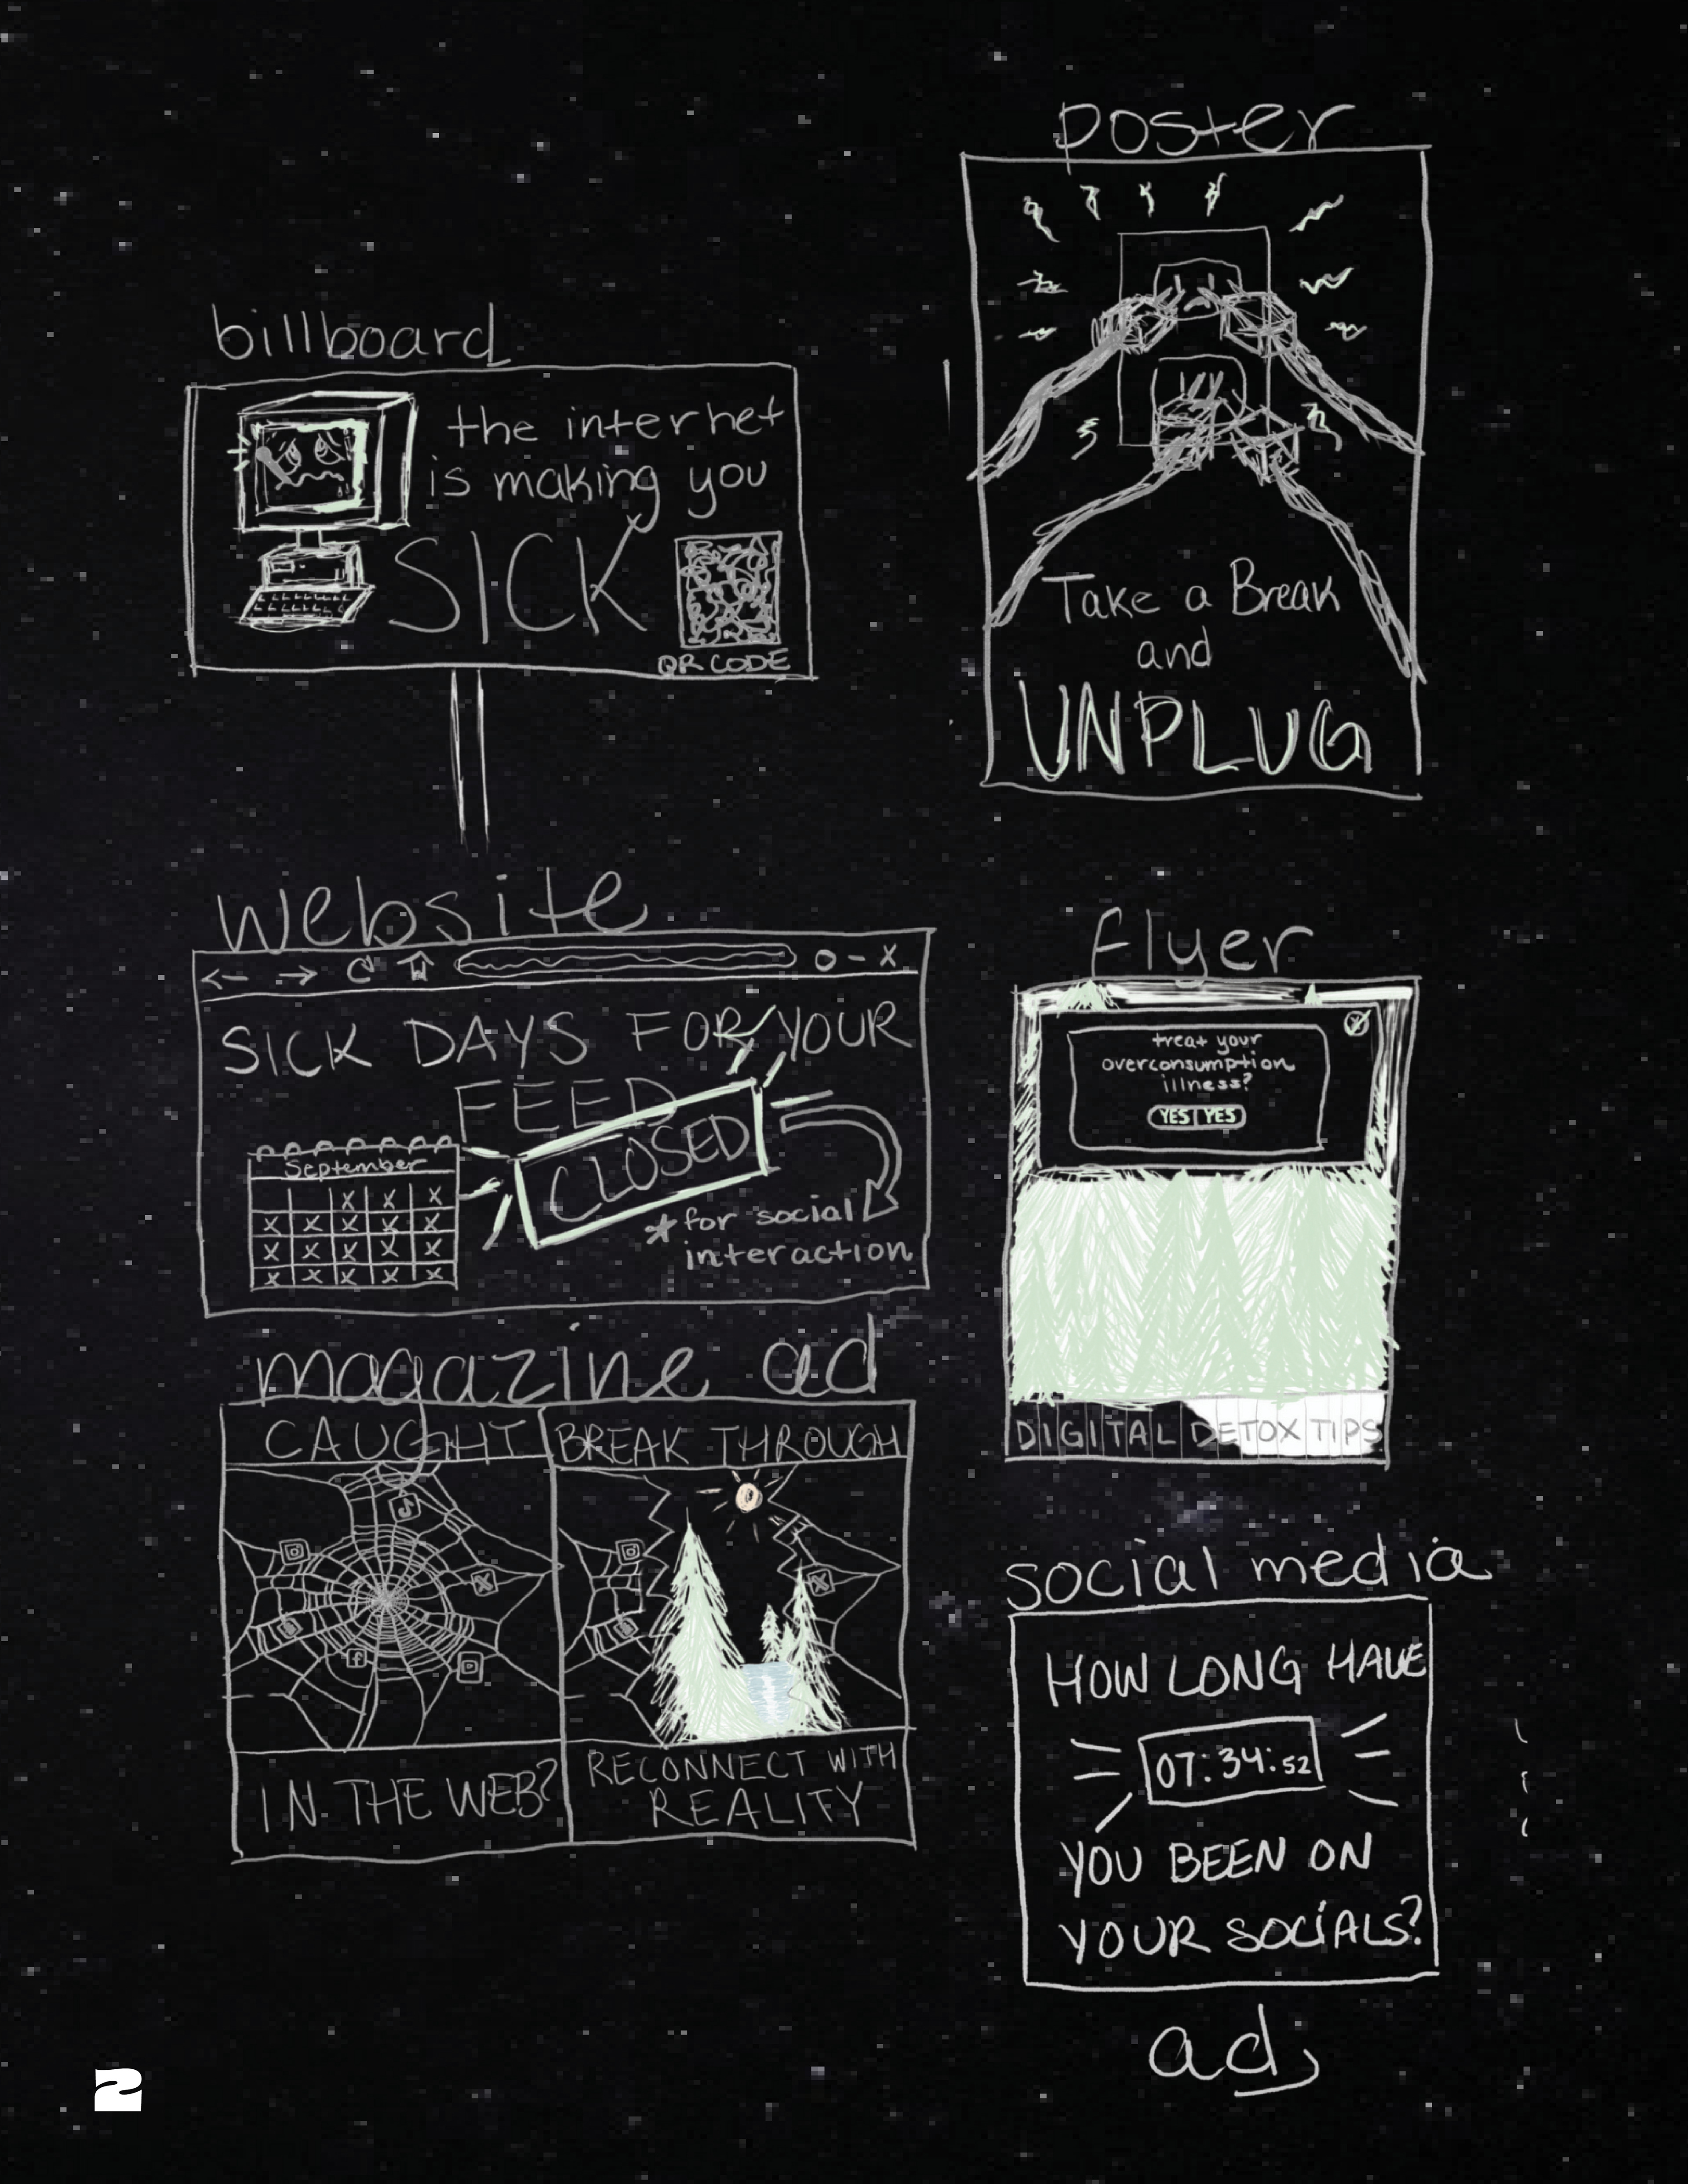 billboard
the internet
is making you
SICK
QR CODE
poster
Take a Break
and
UNPLUG
website
SICK DAYS FOR YOUR
FEED
CLOSED
September
X X X
X X X X X
X X X X X
X X X X X
* for social
interaction
flyer
treat your
overconsumption
illness?
YES YES
DIGITAL DETOX TIPS
magazine ad
CAUGHT
IN THE WEB?
BREAK THROUGH
RECONNECT WITH
REALITY
social media
HOW LONG HAVE
07:34:52
YOU BEEN ON
YOUR SOCIALS?
ad
2